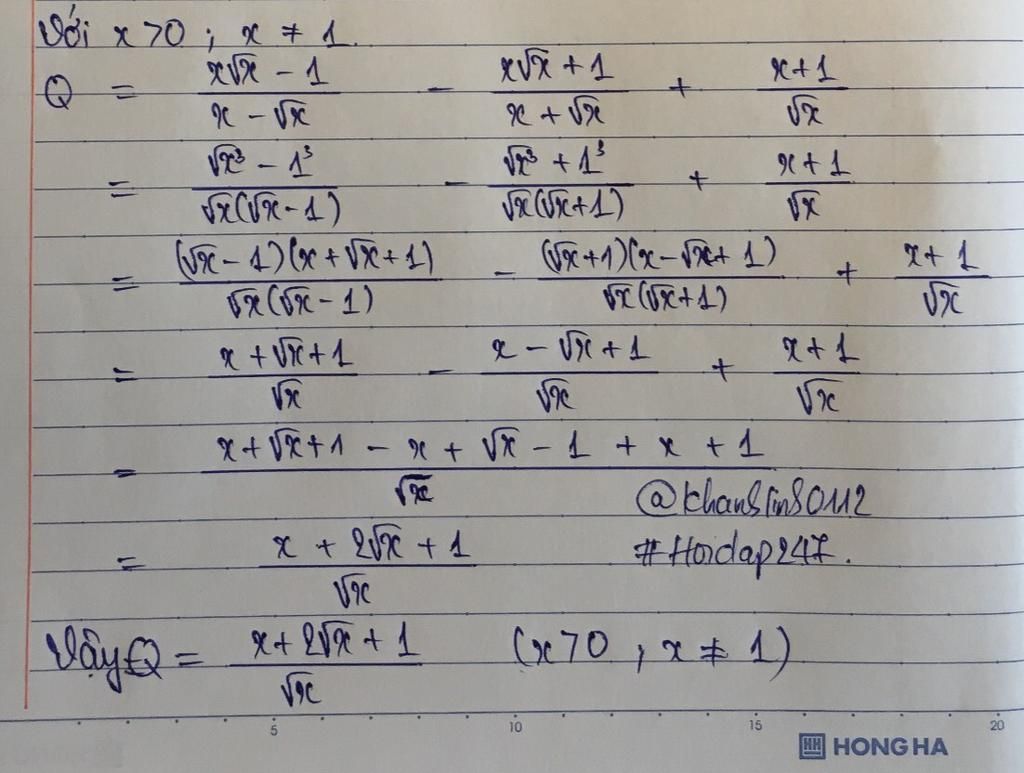 Với x > 0 ; x ≠ 1.
Q = (x√x - 1)/(x - √x) - (x√x + 1)/(x + √x) + (x+1)/√x
= (√x³ - 1³)/(√x(√x - 1)) - (√x³ + 1³)/(√x(√x+1)) + (x+1)/√x
= (√x - 1)(x + √x + 1)/(√x(√x - 1)) - (√x+1)(x - √x + 1)/(√x(√x+1)) + (x+1)/√x
= (x + √x + 1)/√x - (x - √x + 1)/√x + (x+1)/√x
= (x + √x + 1 - x + √x - 1 + x + 1)/√x
@khanslins0112
= (x + 2√x + 1)/√x
#Hoidap247.
Vậy Q = (x + 2√x + 1)/√x (x > 0 ; x ≠ 1)
5 10 15 20
HONG HA